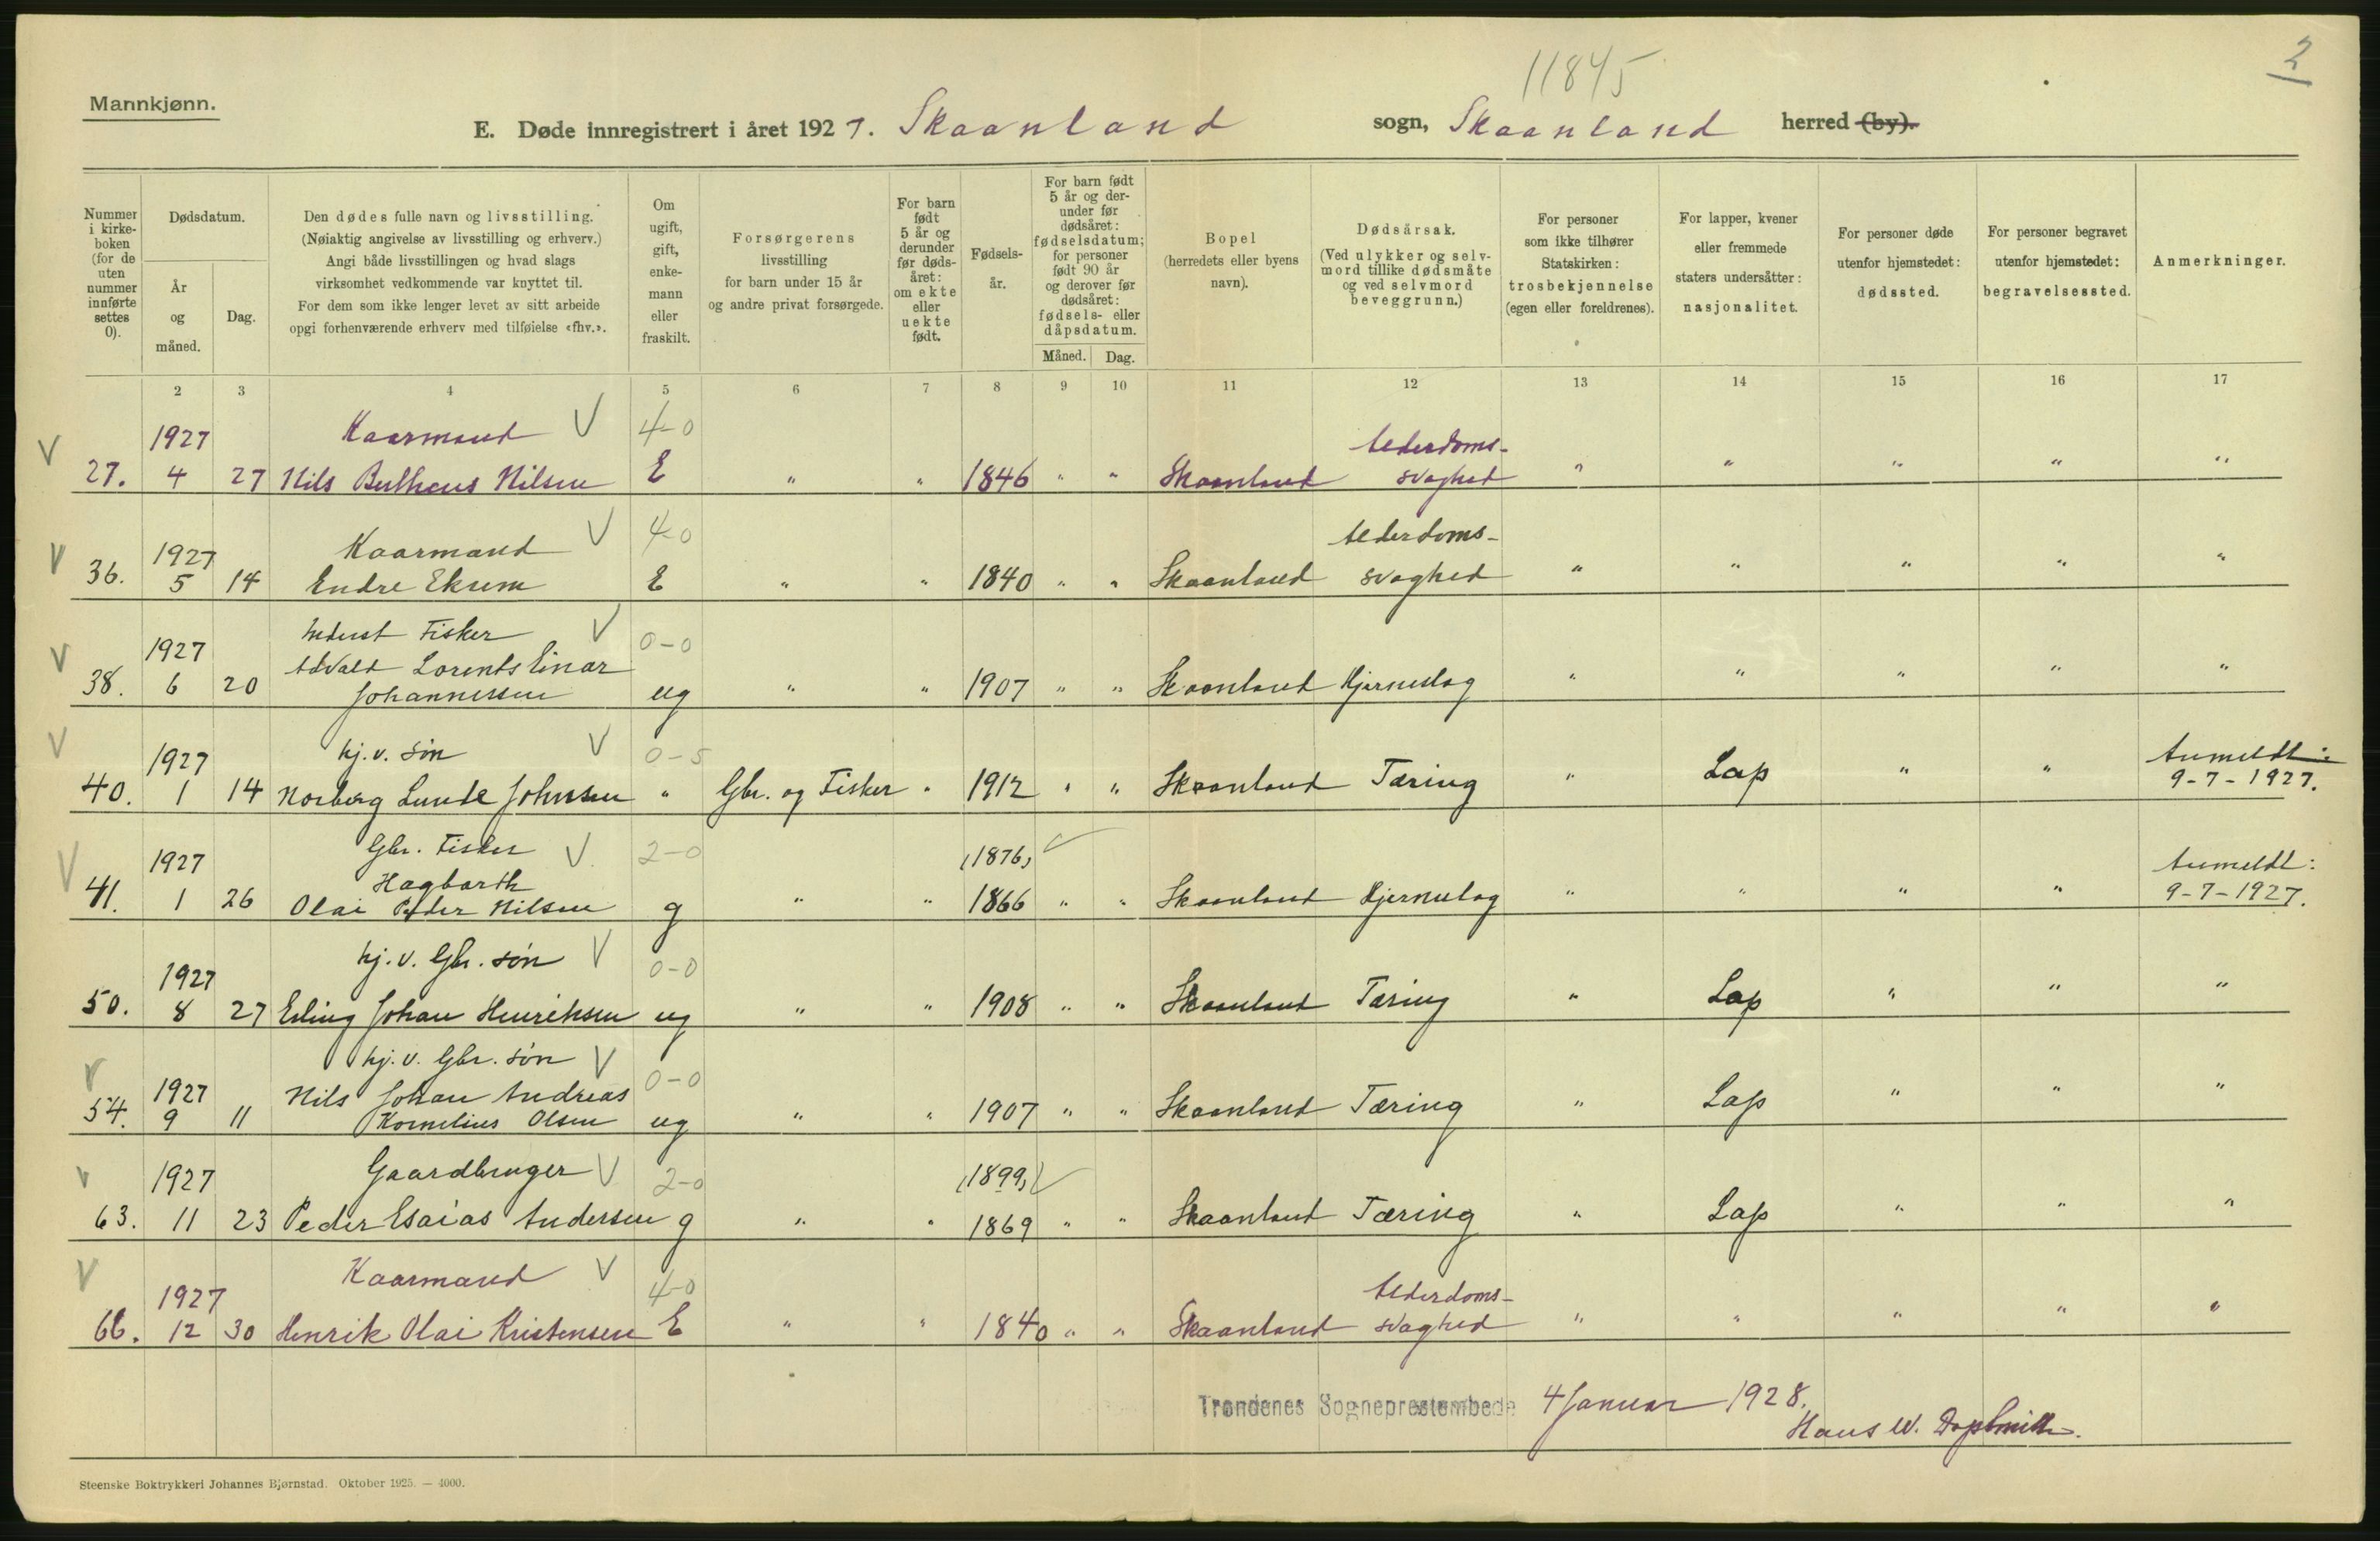 11845
2
Mannkjønn.
E. Døde innregistrert i året 1927. Skaanland sogn, Skaanland herred (by).
Nummer i kirke- boken (for de uten nummer innførte settes 0).
Dødsdatum.
År og måned.
Dag.
Den dødes fulle navn og livsstilling.
(Nøiaktig angivelse av livsstilling og erhverv.)
Angi både livsstillingen og hvad slags
virksomhet vedkommende var knyttet til.
For dem som ikke lenger levet av sitt arbeide
opgi forhenværende erhverv med tilføielse «fhv.».
Om ugift, gift, enke- mann eller fraskilt.
Forsørgerens
livsstilling
for barn under 15 år
og andre privat forsørgede.
For barn født 5 år og derunder før døds- året: om ekte eller uekte født.
Fødsels- år.
For barn født 5 år og der- under før dødsåret: fødselsdatum; for personer født 90 år og derover før dødsåret: fødsels- eller dåpsdatum.
Måned. Dag.
Bopel
(herredets eller byens
navn).
Dødsårsak.
(Ved ulykker og selv-
mord tillike dødsmåte
og ved selvmord
beveggrunn.)
For personer
som ikke tilhører
Statskirken:
trosbekjennelse
(egen eller foreldrenes).
For lapper, kvener
eller fremmede
staters undersåtter:
nasjonalitet.
For personer døde
utenfor hjemstedet:
dødssted.
For personer begravet
utenfor hjemstedet:
begravelsessted.
Anmerkninger.
2 3 4 5 6 7 8 9 10 11 12 13 14 15 16 17
V 1927 Kaarmand V 4-0 Alderdoms-
27. 4 27 Nils Bertheus Nilsen E " " 1846 " " Skaanland svaghed " " " " "
V 1927 Kaarmand V 4-0 Alderdoms-
36. 5 14 Endre Ekrem E " " 1840 " " Skaanland svaghed " " " " "
Inderst Fisker V 0-0
V 1927 Advald Lorents Einar
38. 6 20 Johannessen ug " " 1907 " " Skaanland Hjerneslag " " " " "
V 1927 hj. v. søn V 0-5 Anmeldt:
40. 1 14 Norberg Lunde Johnsen " Gbr. og Fisker " 1912 " " Skaanland Tæring " Lap " " 9-7-1927.
V 1927 Gbr. Fisker V 2-0 (1876) Anmeldt:
Hagbarth
41. 1 26 Olai Peder Nilsen g " " 1866 " " Skaanland Hjerneslag " " " " 9-7-1927.
1927 hj. v. Gbr. søn V 0-0
50. 8 27 Erling Johan Henriksen ug " " 1908 " " Skaanland Tæring " Lap " " "
V hj. v. Gbr. søn V 0-0
1927 Nils Johan Andreas
54. 9 11 Kornelius Olsen ug " " 1907 " " Skaanland Tæring " Lap " " "
V 1927 Gaardbruger V 2-0 (1899)
63. 11 23 Peder Esaias Andersen g " " 1869 " " Skaanland Tæring " Lap " " "
V 1927 Kaarmand V 4-0 Alderdoms-
66. 12 30 Henrik Olai Kristensen E " " 1840 " " Skaanland svaghed " " " " "
Trondenes Sogneprestembede 4 Januar 1928.
Hans W.
Steenske Boktrykkeri Johannes Bjørnstad. Oktober 1925. — 4000.